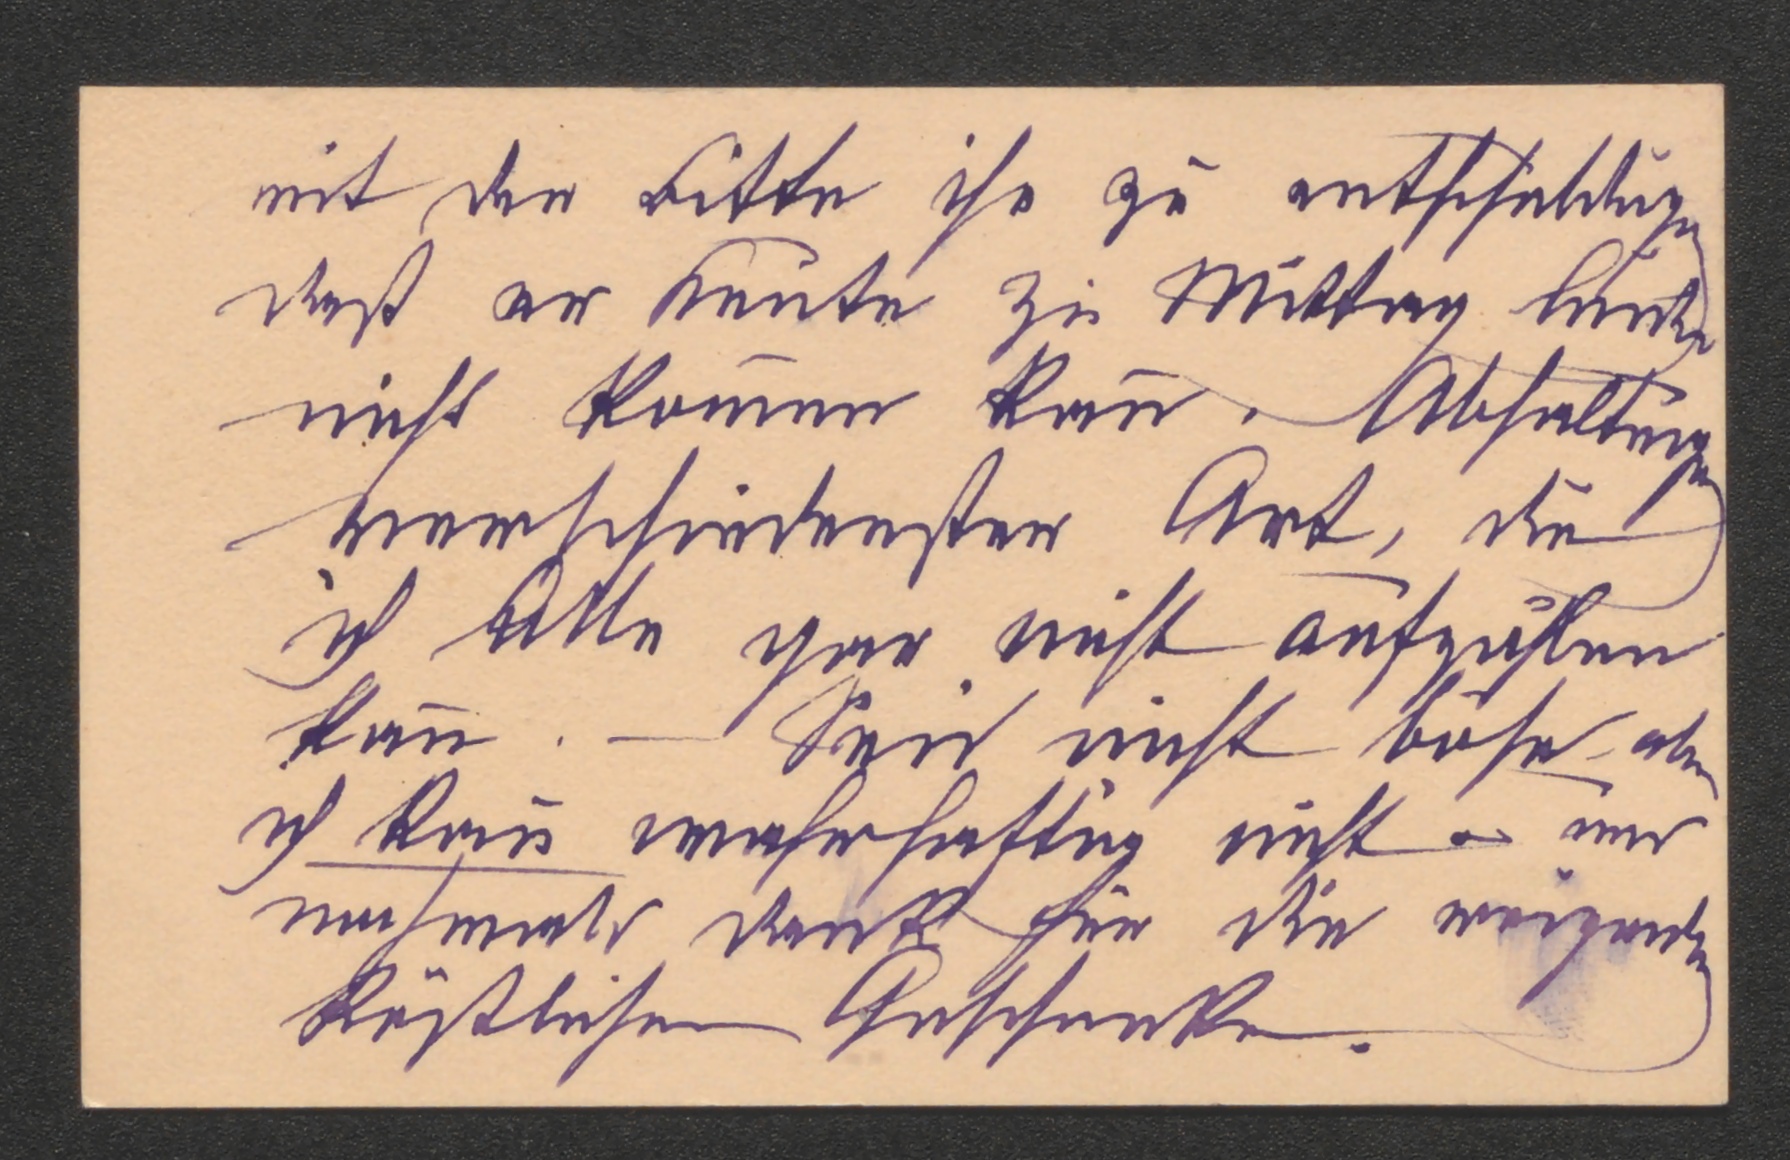 mit der Bitte ihn zu entschuldigen
daß er heute zu Mittag leider
nicht kom̄en kan̄. Abhaltungen
verschiedenster Art, die
ich Alle gar nicht aufzählen
kan̄. — Sei nicht böse aber
ich kan̄ wahrhaftig nicht –
nochmals Dank für die reizenden
köstlichen Geschenke.